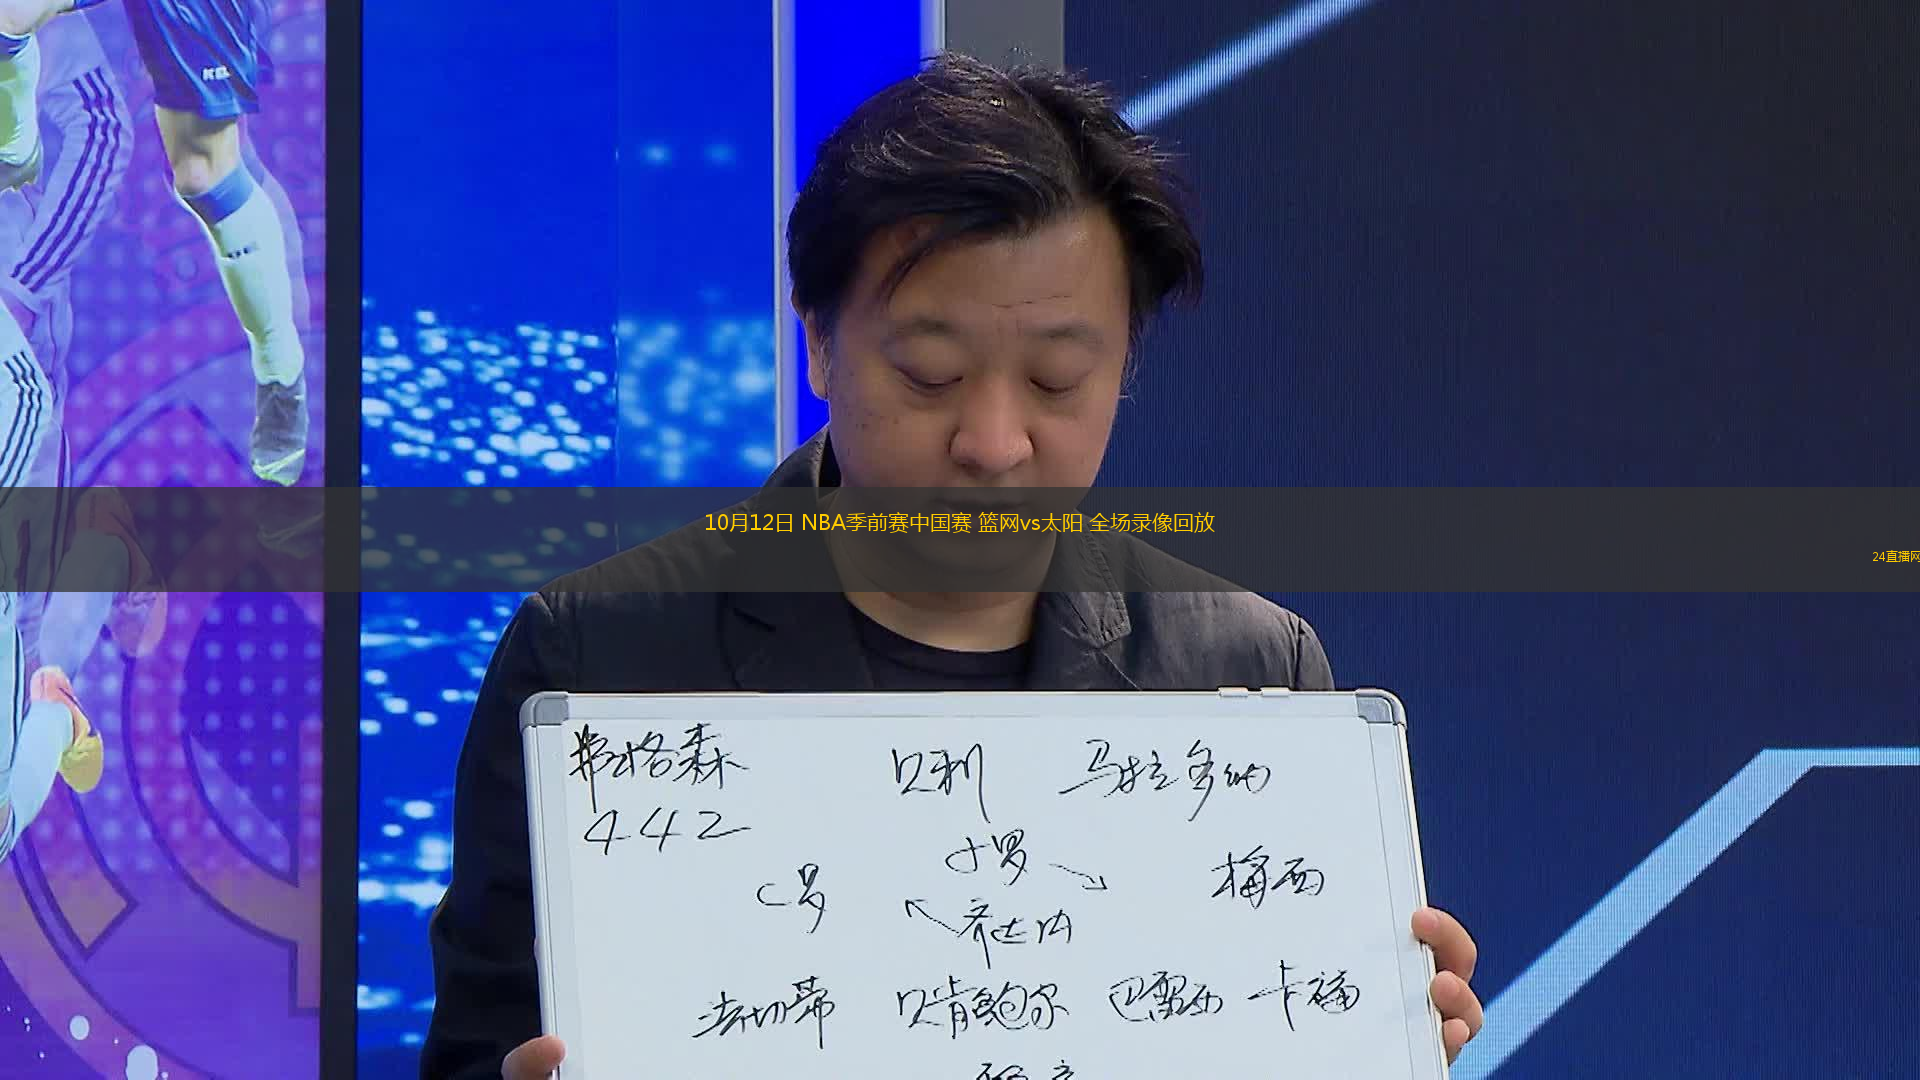 10月12日 NBA季前赛中国赛 篮网vs太阳 全场录像回放
24直播网
弗格森 贝利 马拉多纳
442
小罗
C罗 梅西
齐达内
法切蒂 贝肯鲍尔 巴雷西 卡福